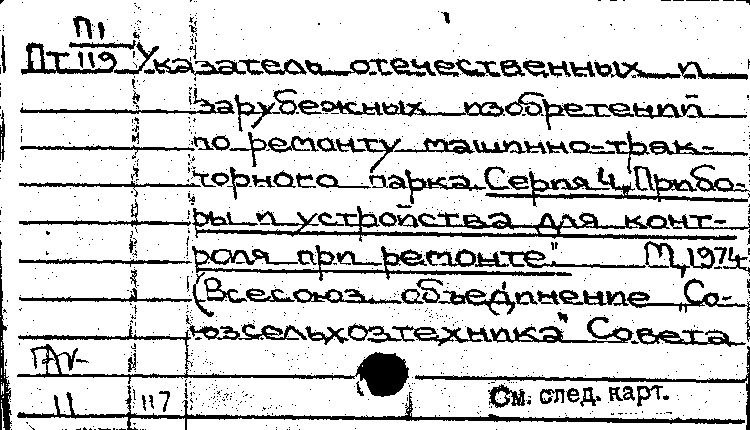 П1
Пт 119 Указатель отечественных и
зарубежных изобретений
по ремонту машинно-трак-
торного парка. Серия 4. „Прибо-
ры и устройства для конт-
роля при ремонте." М, 1974
(Всесоюз. объединение „Со-
юзсельхозтехника" Совета
11 117 См. след. карт.